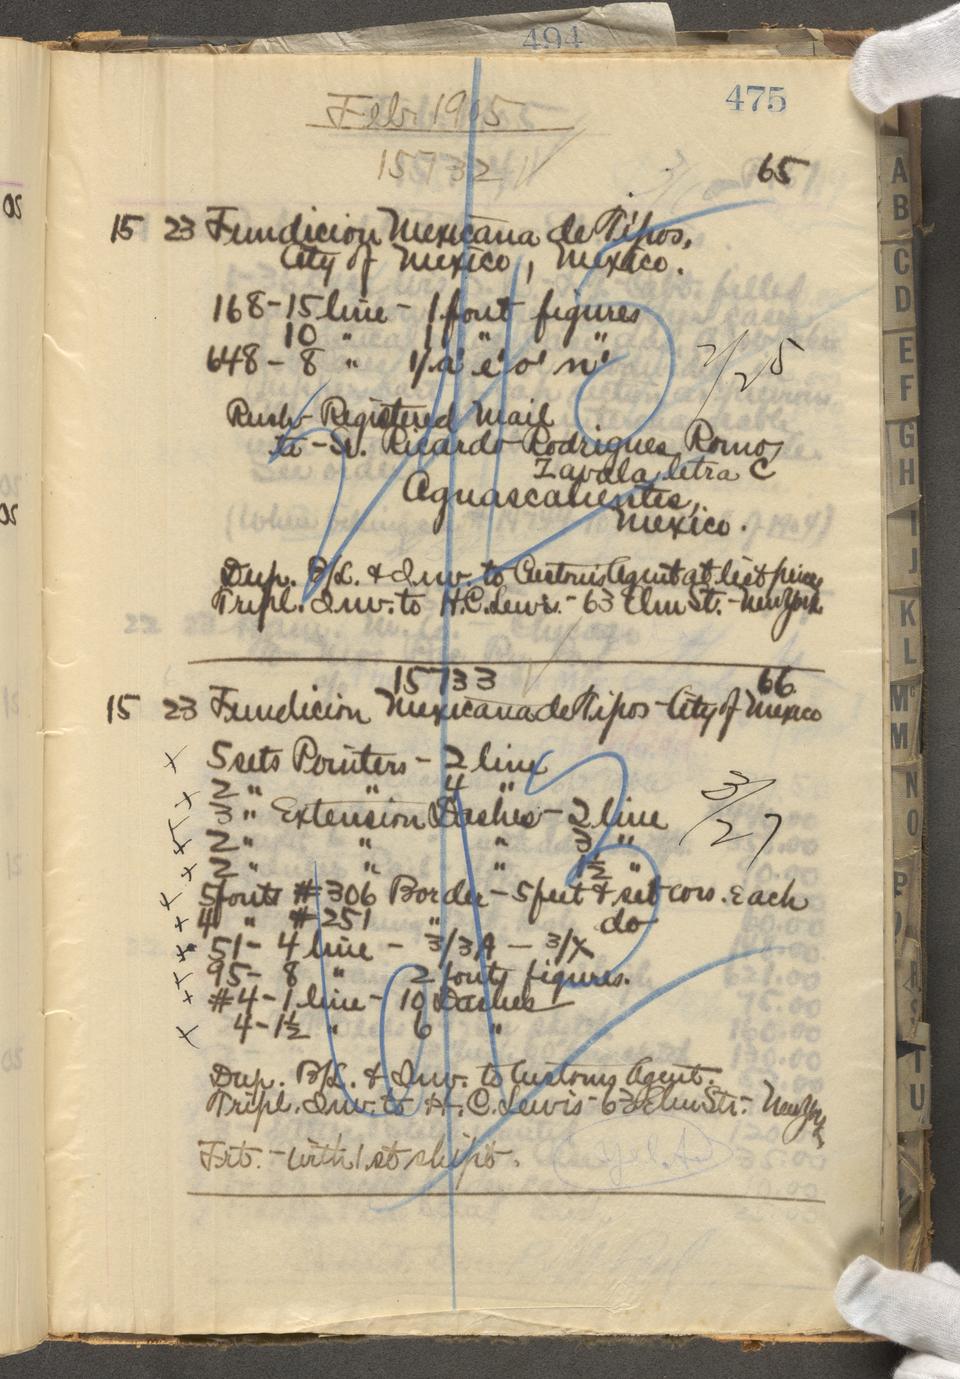 494
475
Feb. 1905
15732
65
15 23 Fundicion Mexicana de Tipos,
City of Mexico, Mexico.
168-15 line - 1 font figures
10 " 1 " "
648-8 " 1/a' e' o' n'
2/25
Rush - Registered Mail
to - Sr. Ricardo Rodrigues Romo,
Zavala letra C
Aguascalientes,
Mexico.
Dup. B/L. & Inv. to Customs Agent at list prices
Tripl. Inv. to H.C. Lewis - 63 Elm St. - New York
15733
66
15 23 Fundicion Mexicana de Tipos - City of Mexico
x 5 sets Pointers - 2 line
x 2 " " 4 "
x 3 " Extension Dashes - 2 line
x 2 " " " 3 "
x 2 " " " 1½ "
3/27
x 5 fonts #306 Border - 5 feet & set cors. each
x 4 " #251 " do
x 51-4 line - 3/3A - 3/X
x 95-8 " 2 fonts figures.
x #4-1 line - 10 Dashes
x 4-1½ " 6 "
Dup. B/L. & Inv. to Customs Agent.
Tripl. Inv. to H.C. Lewis - 63 Elm Str. - New York
Frt. - with 1st shipt.
A
B
C
D
E
F
G
H
I
J
K
L
Mc
M
N
O
P
R
S
T
U